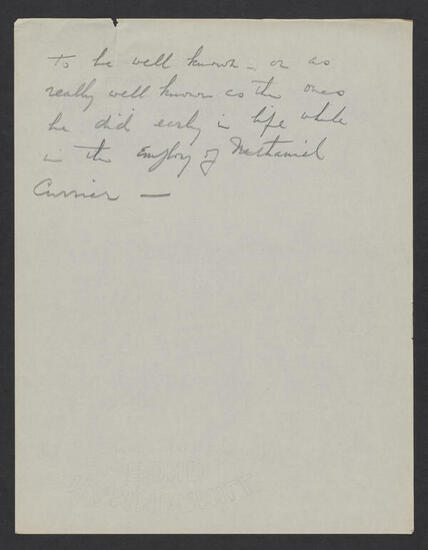 to be well known – or as
really well known as the ones
he did early in life while
in the employ of Nathaniel
Currier —